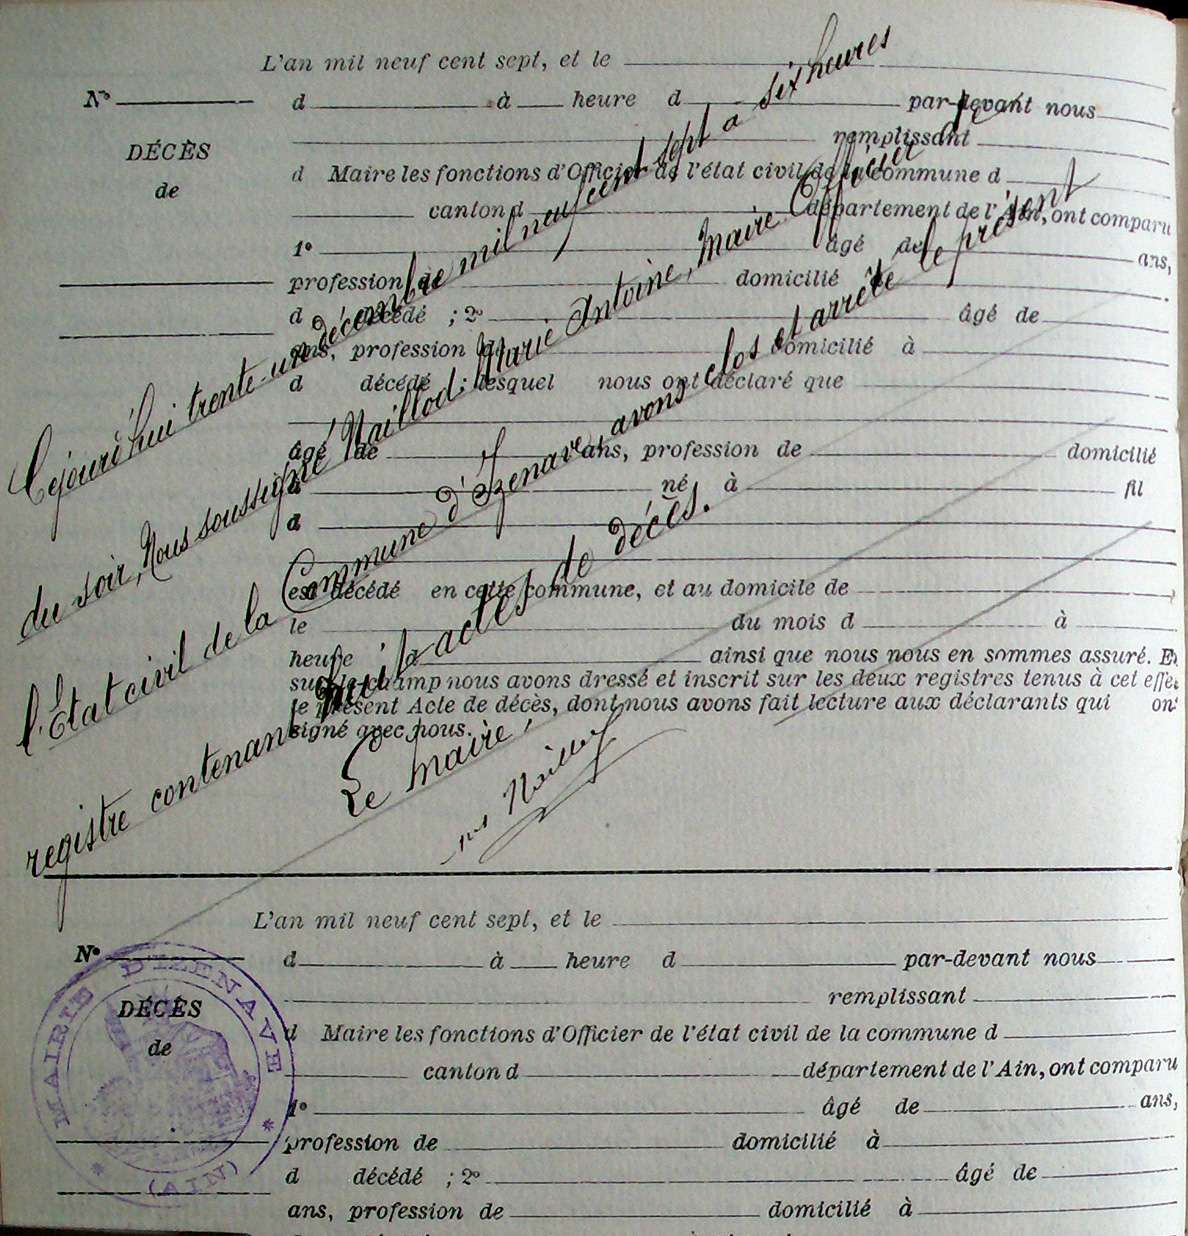 L'an mil neuf cent sept, et le
N° d à heure d par-devant nous
DÉCÈS remplissant
de d Maire les fonctions d'Officier de l'état civil de la commune d
canton d département de l'Ain, ont comparu
1° âgé de ans,
profession de domicilié à
d décédé ; 2° âgé de
ans, profession de domicilié à
d décédé ; lesquel nous ont déclaré que
âgé de ans, profession de domicilié
à né à fil
d
est décédé en cette commune, et au domicile de
le du mois d à
heure ainsi que nous nous en sommes assuré. Et
sur le champ nous avons dressé et inscrit sur les deux registres tenus à cet effet
le présent Acte de décès, dont nous avons fait lecture aux déclarants qui ont
signé avec nous.
Cejourd'hui trente-un décembre mil neuf cent sept à six heures
du soir, Nous soussigné Maillod Marie Antoine, Maire Officier de
l'État civil de la Commune d'Izenave, avons clos et arrêté le présent
registre contenant huit actes de décès.
Le Maire,
L'an mil neuf cent sept, et le
N° d à heure d par-devant nous
DÉCÈS remplissant
de d Maire les fonctions d'Officier de l'état civil de la commune d
canton d département de l'Ain, ont comparu
1° âgé de ans,
profession de domicilié à
d décédé ; 2° âgé de
ans, profession de domicilié à
MAIRIE D'IZENAVE
* (AIN) *